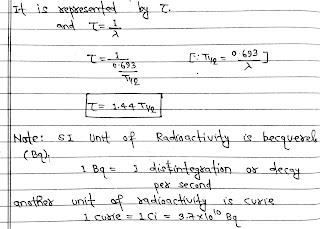 It is represented by τ.
and τ = 1/λ
τ = 1/(0.693/T1/2) [∵ T1/2 = 0.693/λ]
τ = 1.44 T1/2
Note: SI Unit of Radioactivity is becquerel
(Bq).
1 Bq = 1 disintegration or decay
per second
another unit of radioactivity is curie
1 curie = 1 Ci = 3.7x10^10 Bq